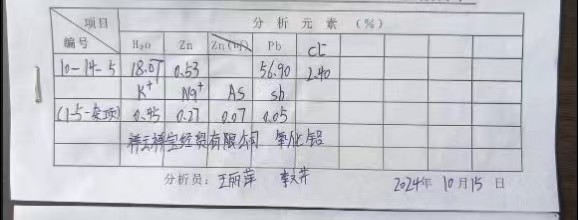 项目 分析元素(%)
编号 H₂O Zn Zn(可) Pb Cl⁻
10-14-5 18.07 0.53 56.90 2.40
K⁺ Na⁺ As Sb
0.95 0.27 0.07 0.05
祥云祥宝经贸有限公司 氧化铅
分析员:王丽萍 2024年10月15日